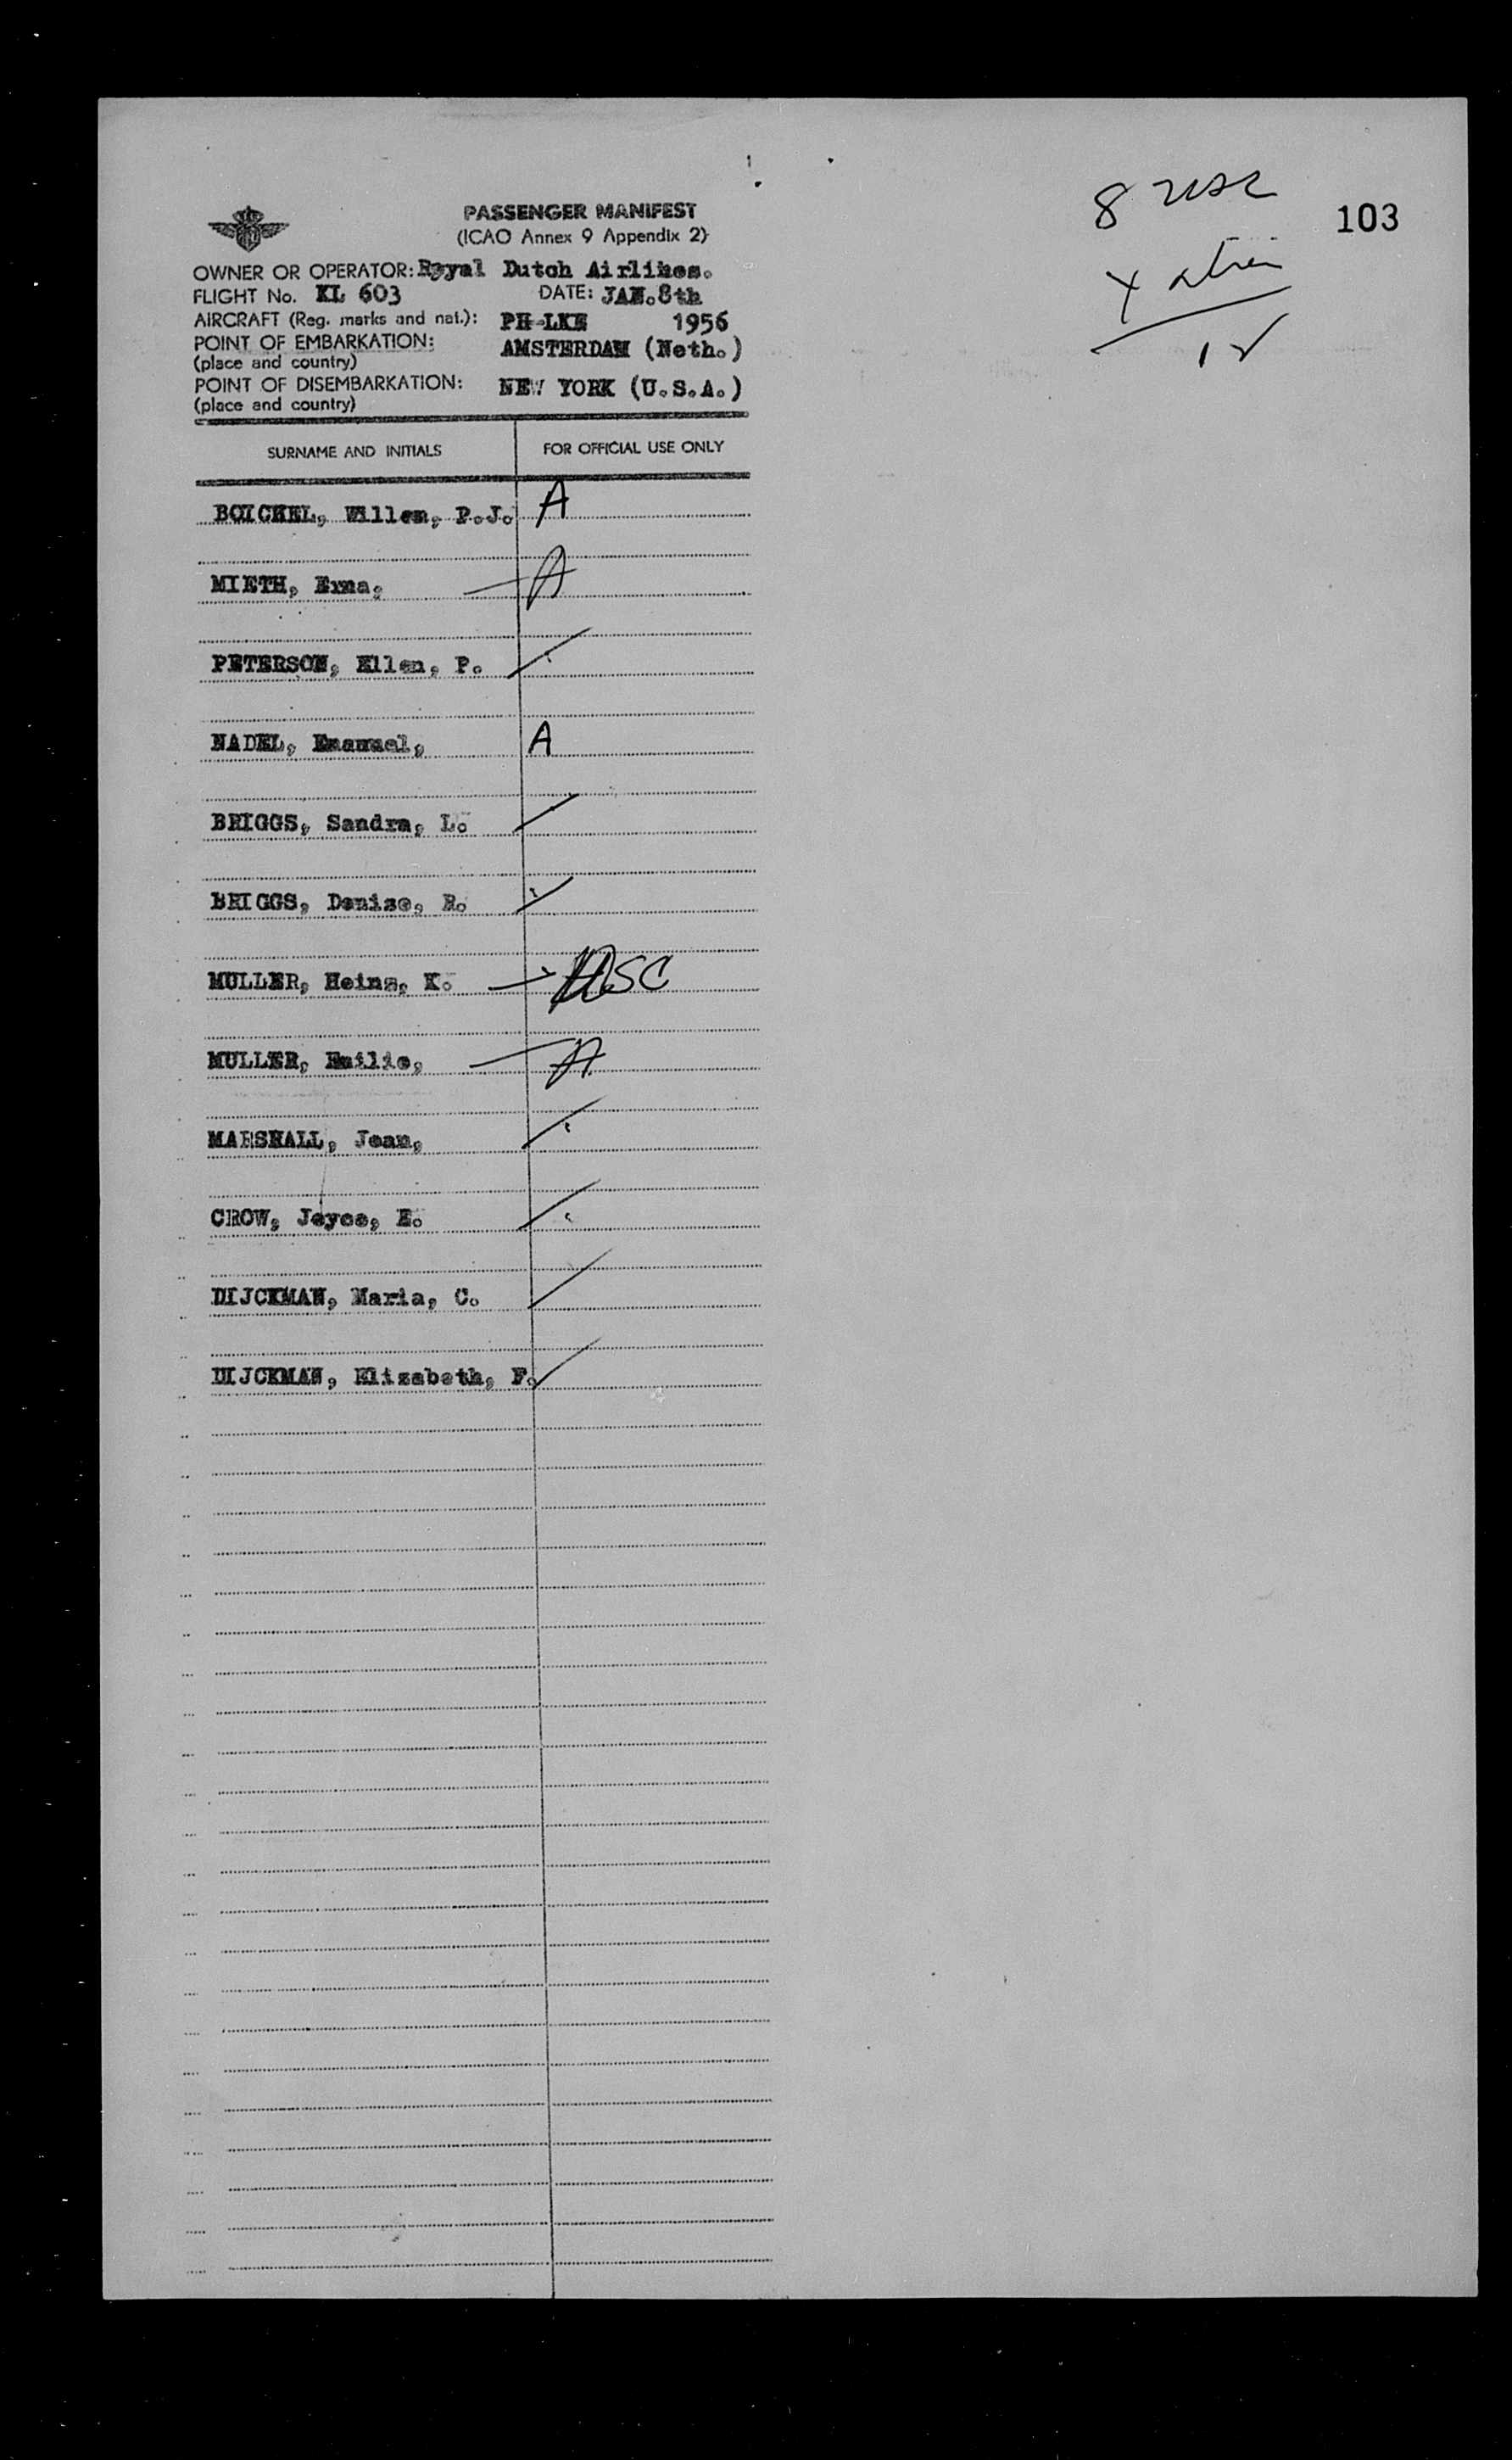 8 USC
103
4 alien
12
PASSENGER MANIFEST
(ICAO Annex 9 Appendix 2)
OWNER OR OPERATOR: Royal Dutch Airlines.
FLIGHT No. KL 603 DATE: JAN. 8th
AIRCRAFT (Reg. marks and nat.): PH-LKE 1956
POINT OF EMBARKATION: AMSTERDAM (Neth.)
(place and country)
POINT OF DISEMBARKATION: NEW YORK (U.S.A.)
(place and country)
SURNAME AND INITIALS FOR OFFICIAL USE ONLY
BOICHEL, Willem, P.J. A
MIETH, Erna, A
PETERSON, Ellen, P.
NADEL, Emanuel, A
BRIGGS, Sandra, L.
BRIGGS, Denise, R.
MULLER, Heinz, K. USC
MULLER, Emilie, A
MARSHALL, Jean,
CROW, Joyce, E.
DIJCKMAN, Maria, C.
DIJCKMAN, Elizabeth, F.